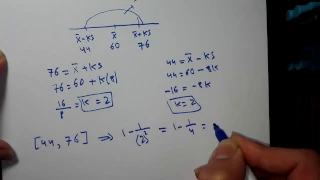 x̄-ks x̄ x̄+ks
44 60 76
76 = x̄ + ks
76 = 60 + k(8)
16/8 = k = 2
44 = x̄ - ks
44 = 60 - 8k
-16 = -8k
k = 2
[44, 76] ⟹ 1 - 1/(2)² = 1 - 1/4 =